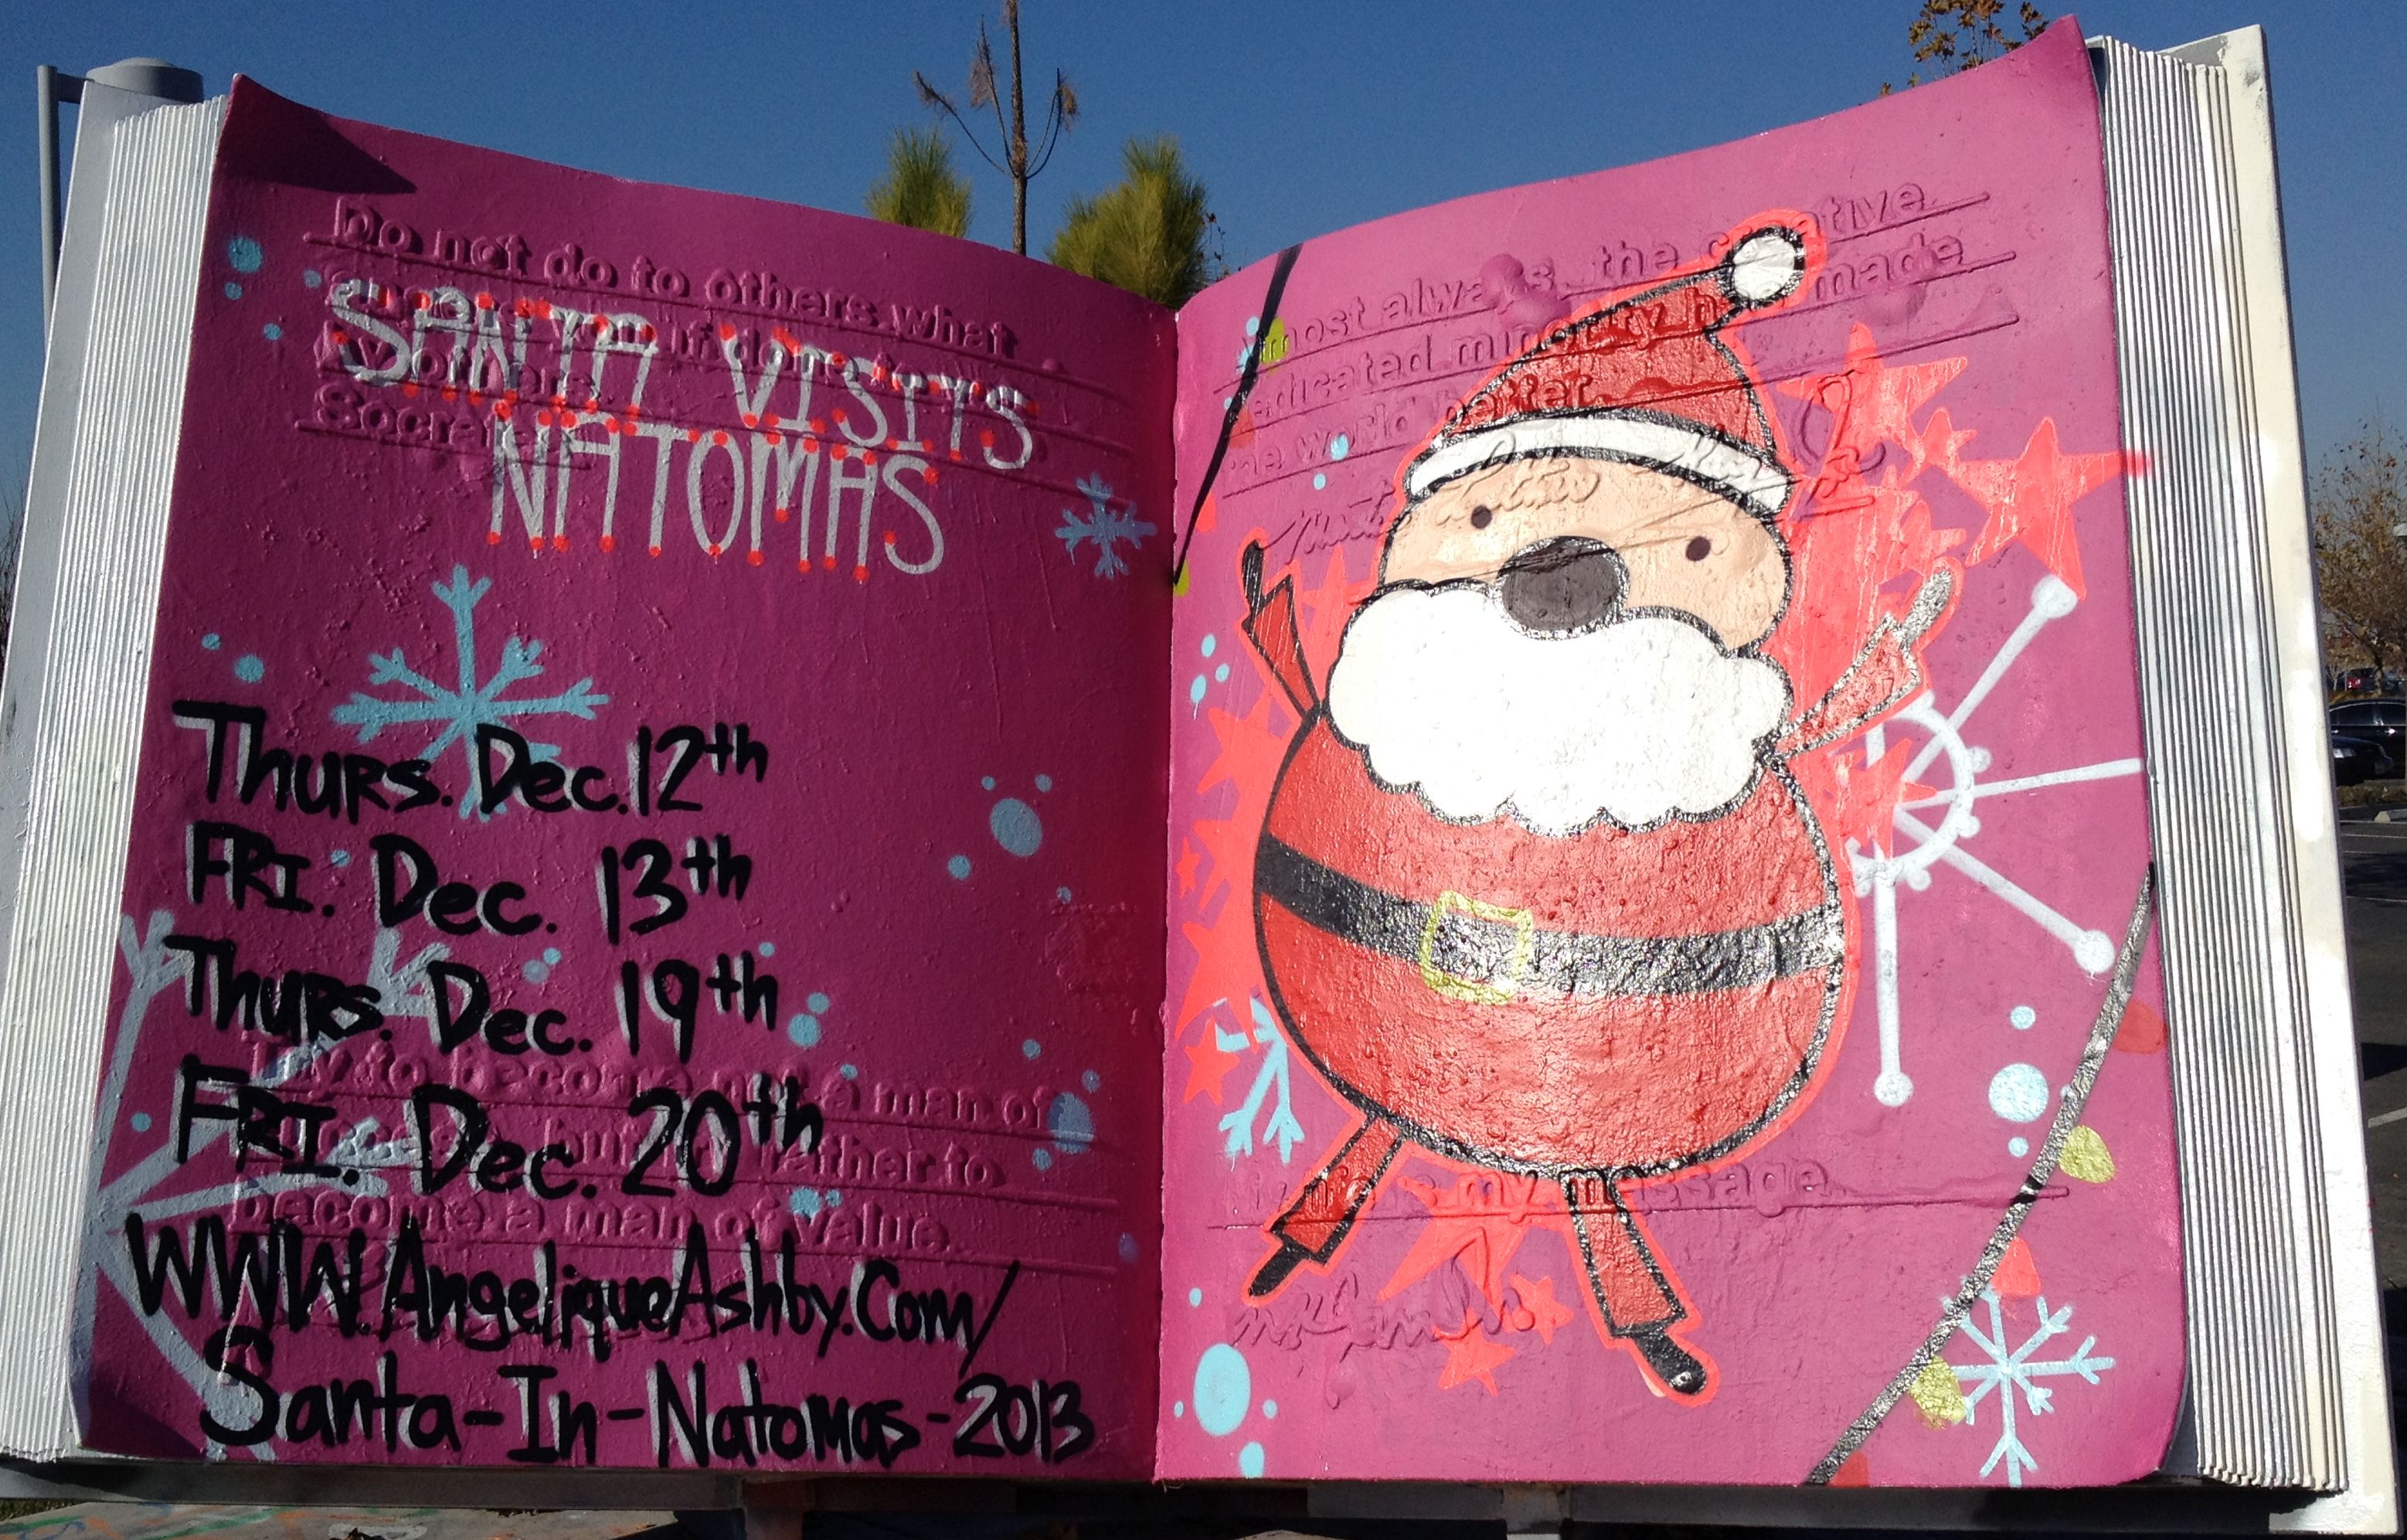 Do not do to others what
you if done
by others.
Socrates
SANTA VISITS
NATOMAS
Thurs. Dec. 12th
FRI. Dec. 13th
Thurs. Dec. 19th
FRI. Dec. 20th
Try to become not a man of
success, but rather to
become a man of value.
WWW.AngeliqueAshby.Com/
Santa-In-Natomas-2013
most always, the creative
dedicated minority has made
the world better.
Martin Luther King Jr
My life is my message.
mkgandhi